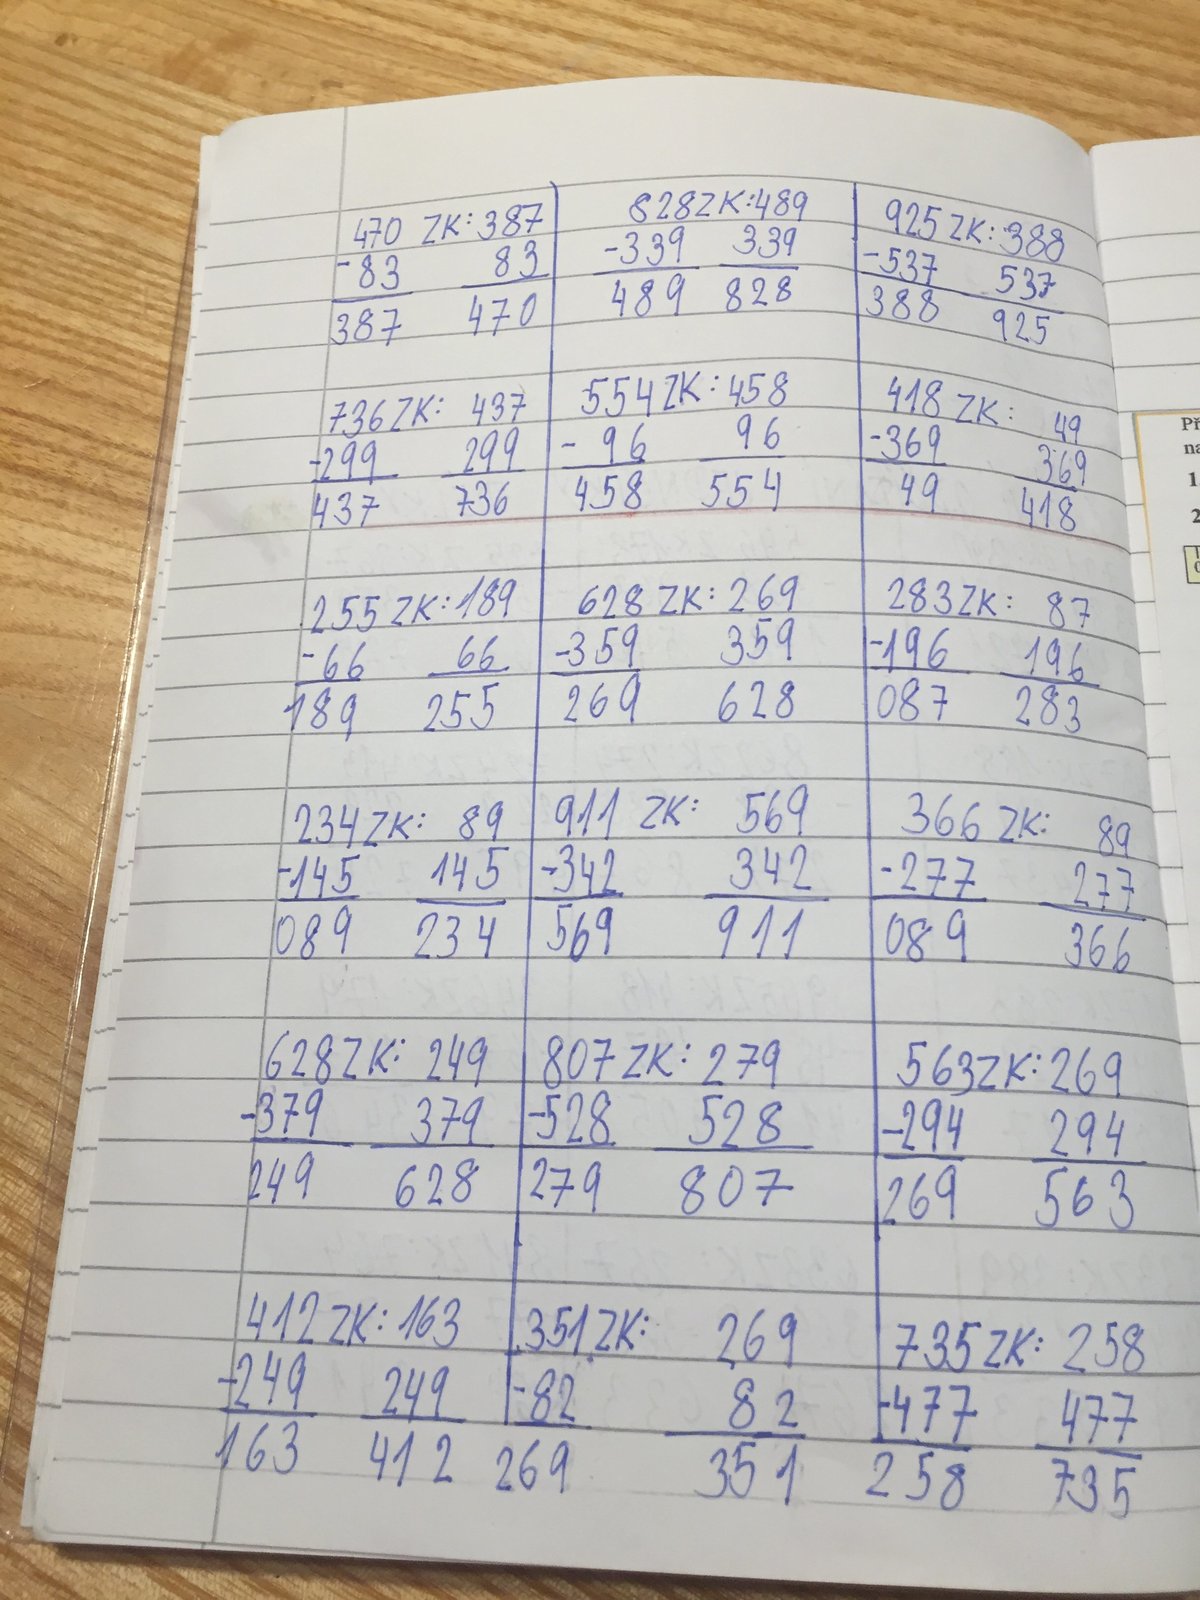 470 ZK: 387
-83 83
387 470
828 ZK: 489
-339 339
489 828
925 ZK: 388
-537 537
388 925
736 ZK: 437
-299 299
437 736
554 ZK: 458
- 96 96
458 554
418 ZK: 49
-369 369
49 418
255 ZK: 189
-66 66
189 255
628 ZK: 269
-359 359
269 628
283 ZK: 87
-196 196
087 283
234 ZK: 89
-145 145
089 234
911 ZK: 569
-342 342
569 911
366 ZK: 89
-277 277
089 366
628 ZK: 249
-379 379
249 628
807 ZK: 279
-528 528
279 807
563 ZK: 269
-294 294
269 563
412 ZK: 163
-249 249
163 412
351 ZK: 269
-82 82
269 351
735 ZK: 258
-477 477
258 735
Př
na
1
2